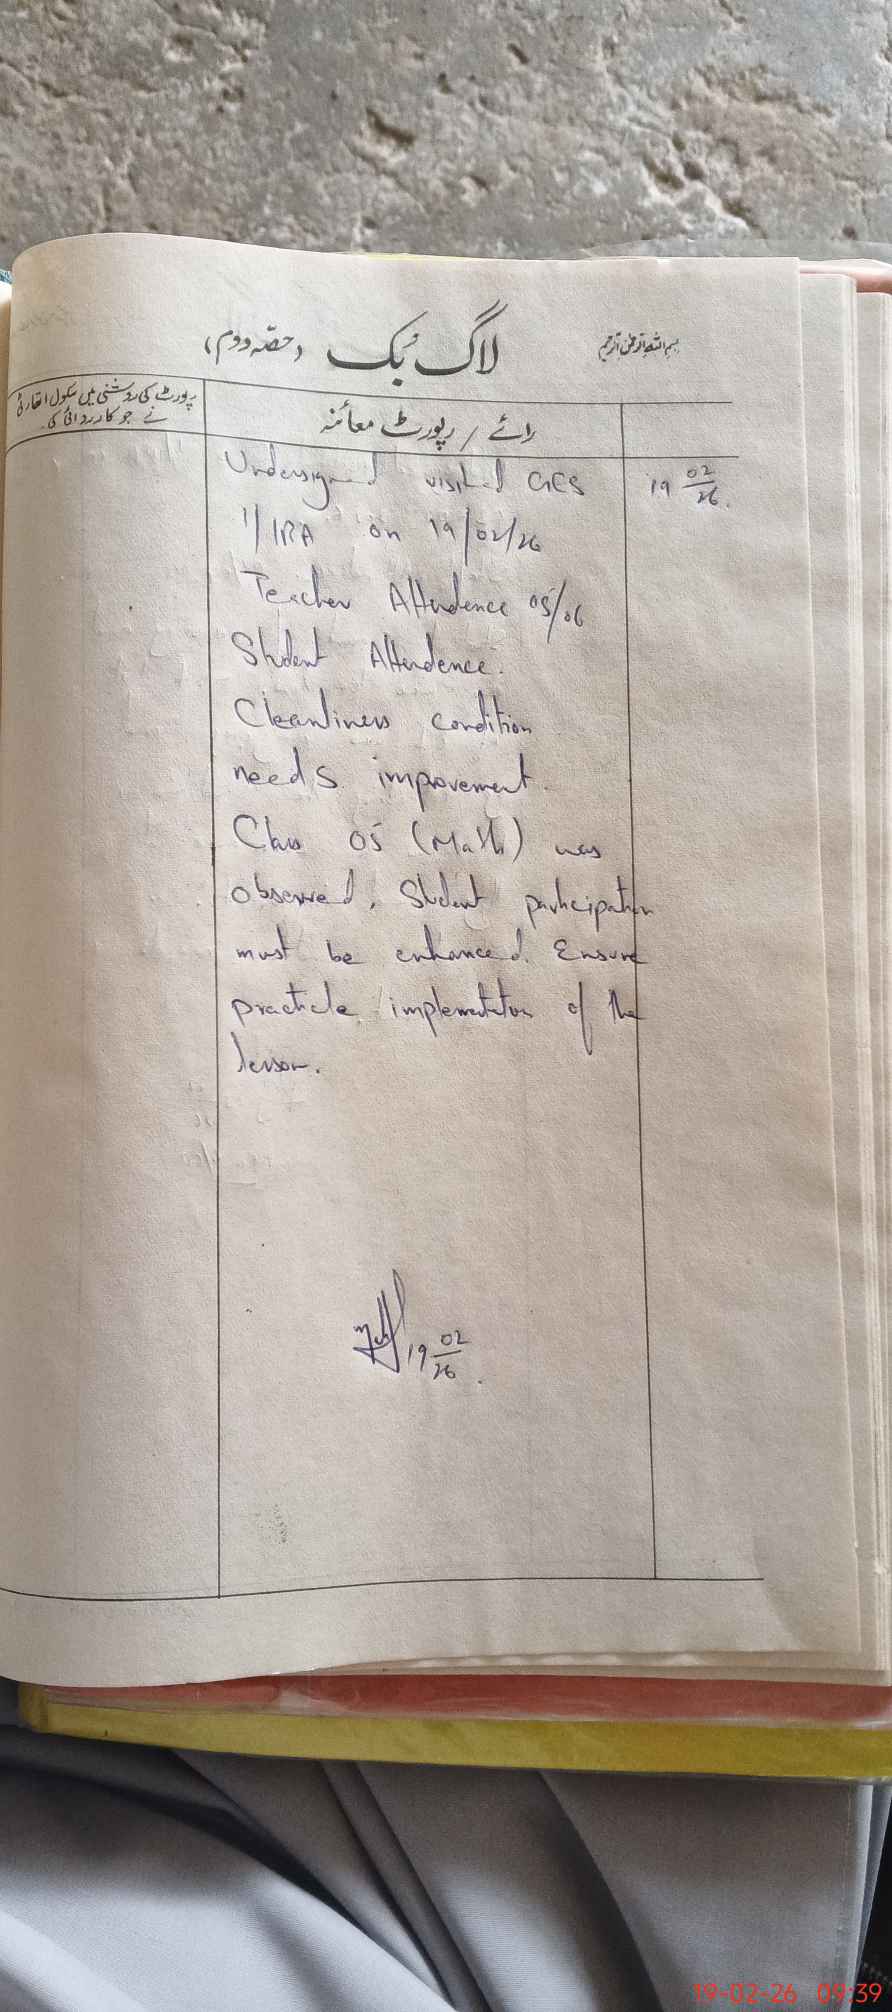 بسم اللہ الرحمن الرحیم
لاگ بُک (حصّہ دوم)
رائے / رپورٹ معائنہ
رپورٹ کی روشنی میں سکول اتھارٹی
نے جو کارروائی کی.
19 02/26.
Undersigned visited GES
1/1RA on 19/02/26
Teacher Attendence 05/06
Student Attendence.
Cleanliness condition
needs improvement.
Class 05 (Math) was
observed. Student participation
must be enhanced. Ensure
practicle implementation of the
lesson.
19 02/26.
19-02-26 09:39